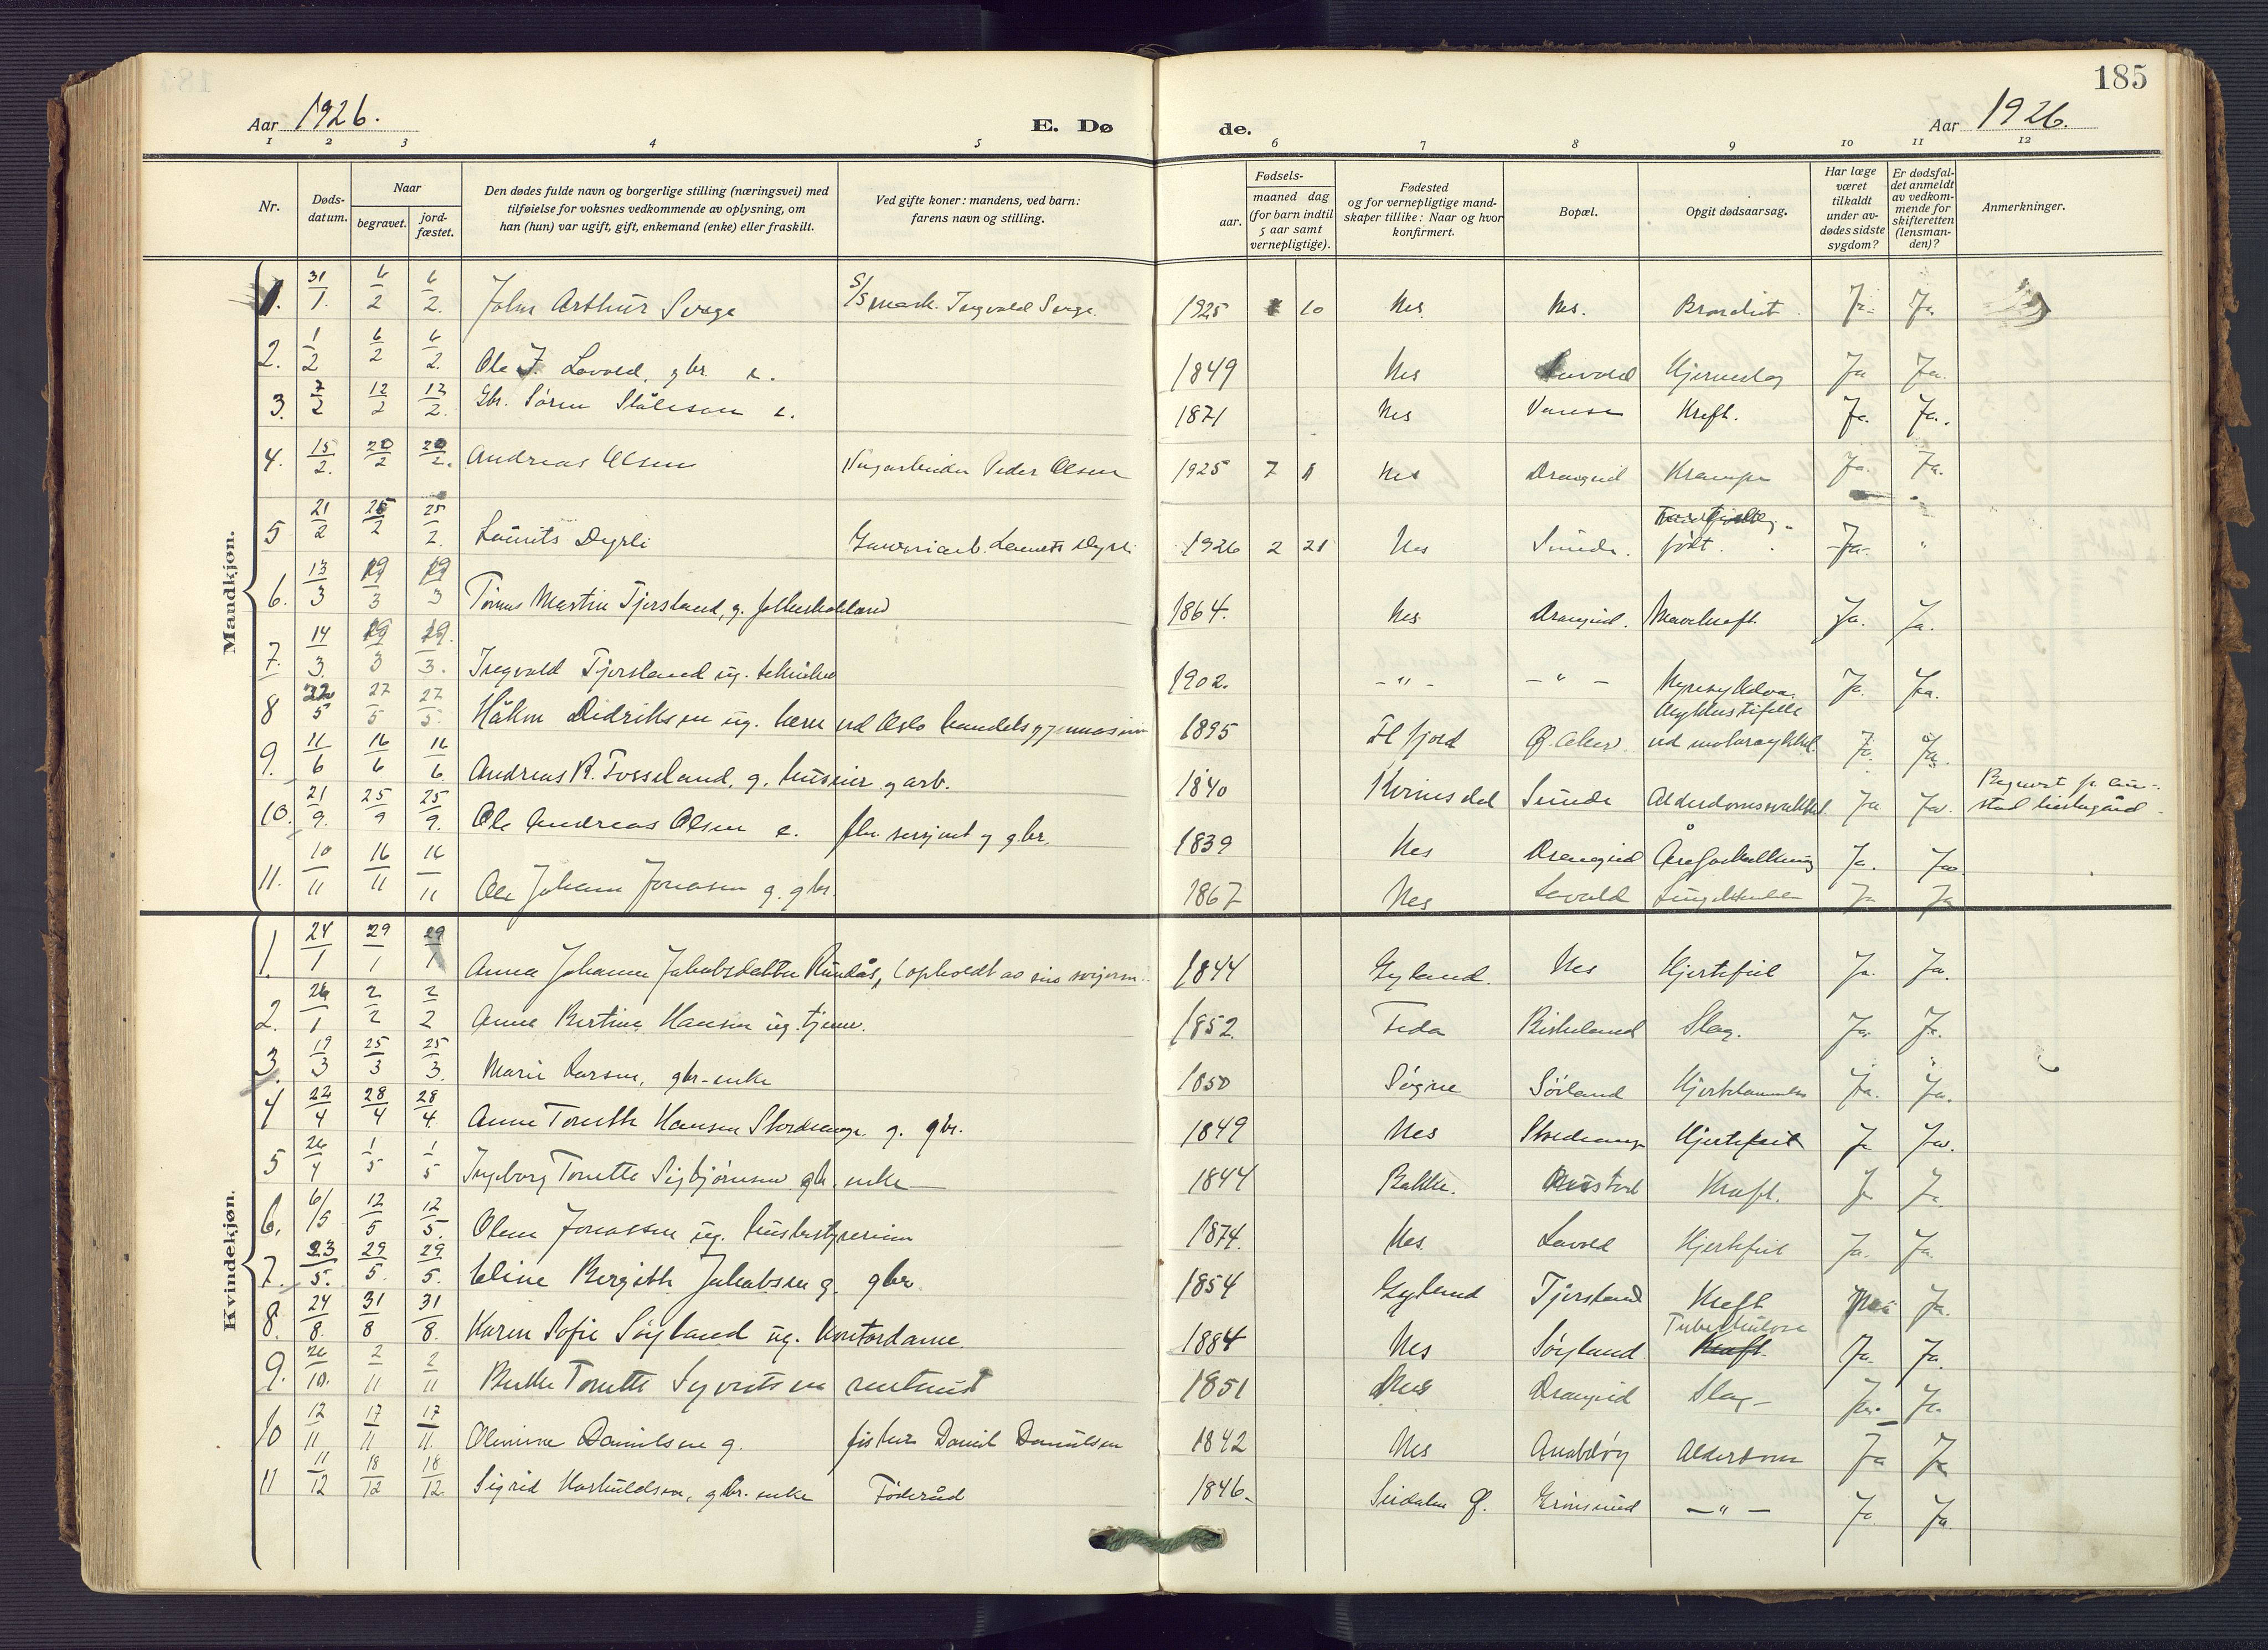 185
Aar 1926. E. Dø de. Aar 1926.
1 2 3 4 5 6 7 8 9 10 11 12
Nr. Døds-datum. Naar begravet. jord-fæstet. Den dødes fulde navn og borgerlige stilling (næringsvei) med tilføielse for voksnes vedkommende av oplysning, om han (hun) var ugift, gift, enkemand (enke) eller fraskilt. Ved gifte koner: mandens, ved barn: farens navn og stilling. Fødsels- aar. maaned dag (for barn indtil 5 aar samt vernepligtige). Fødested og for vernepligtige mand-skaper tillike: Naar og hvor konfirmert. Bopæl. Opgit dødsaarsag. Har læge været tilkaldt under av-dødes sidste sygdom? Er dødsfal-det anmeldt av vedkom-mende for skifteretten (lensman-den)? Anmerkninger.
Mandkjøn.
1. 31/1. 6/2 6/2. John Arthur Svege Ingvald Svege 1925 10 Nes Nes. Ja. Ja.
2. 1/2 6/2 6/2. Ole J. Lavold, gbr. e. 1849 Nes Lavold Hjerneslag Ja Ja.
3. 7/2 12/2 12/2. Gbr. Søren Ståleson e. 1871 Nes Kreft. Ja. Ja.
4. 15/2. 20/2 20/2. Andreas Olsen Peder Olsen 1925 7 Nes Drangeid Krampe Ja. Ja.
5 21/2 25/2 25/2. Laurits Dyrli Dyrli 1926 2 21 Nes Sunde. født. Ja. "
6. 13/3 19/3 19/3 Tønnes Martin Tjørsland, g. 1864. Nes Drangeid. Mavekreft Ja. Ja.
7. 14/3. 19/3 19/3. Ingvald Tjørsland ug. tekniker 1902. - " - - " - Nyresykdom. Ja. Ja.
8 22/5 27/5 27/5. Håkon Didriksen ug. lærer ved Oslo handelsgymnasium 1895 Fl fjord Ø. Aker. Ulykkestifelle ved motorcykkel. Ja. Ja.
9. 11/6 16/6 16/6. Andreas B. Fosseland, g. huseier og arb. 1840 Kvinesdal Sunde Alderdomssvakhet Ja Ja.
10. 21/9. 25/9 25/9. Ole Andreas Olsen e. fhv. sersjant og gbr. 1839 Nes Drangeid Åreforkalkning Ja. Ja.
11. 10/11 16/11 16/11 Ole Johann Jonasen g. gbr. 1867 Nes Lavold Ja Ja
Kvindekjøn.
1. 24/1 29/1 29/1 Anna Johanne Jakobsdatter Rundås, (opholdt av sin svigersøn 1844 Gyland. Nes Hjertefeil Ja. Ja.
2. 26/1 2/2 2/2 Anne Bertine Hansen ug. tjener. 1852. Feda Birkeland Slag. Ja. Ja.
3. 19/3 25/3 25/3. Marie Larsen, gbr-enke 1850 Søgne Søiland Hjertelammelse Ja. Ja.
4 22/4 28/4 28/4. Anne Tonette Hansen Stordrange g. gbr. 1849 Nes Stordrange Hjertefeil Ja Ja.
5 26/4 1/5 1/5 Ingeborg Tonette Sigbjørnsen gbr. enke 1844 Bakke. Kreft. Ja Ja.
6. 6/5 12/5 12/5. Olene Jonassen ug. husbestyrerinne 1874. Nes. Lavold Hjertefeil Ja. Ja.
7. 23/5. 29/5. 29/5. Eline Bergitte Jakobsen g. gbr. 1854 Gyland Tjørsland Kreft Nei Ja.
8. 24/8. 31/8 31/8. Karen Sofie Søyland ug. Kontordame. 1884 Nes Søyland Tuberkulose Kreft Ja. Ja.
9. 26/10. 2/11 2/11 Berthe Tonette Syvertsen 1851 Nes Drangeid Slag Ja. Ja.
10 12/11 17/11 17/11. Olemine Danielsen g. fisker Daniel Danielsen 1842 Nes Anabeløy Alderdom Ja Ja
11 11/12 18/12 18/12. Sigrid Haskuldsen, gbr. enke Føderåd 1846. Sirdalen Ø. Grønsund - " - Ja Ja.